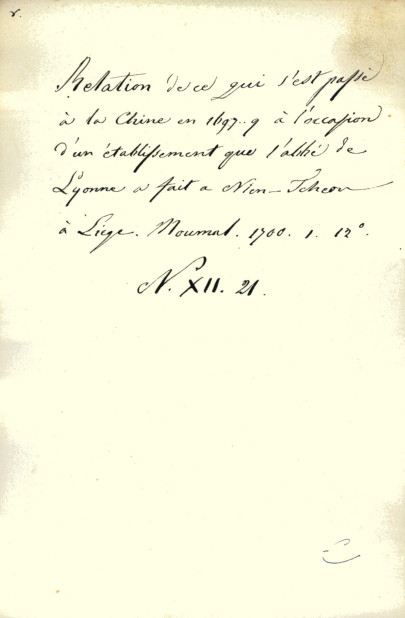 r.
Relation de ce qui s'est passé
à la Chine en 1697..9 à l'occasion
d'un établissement que l'abbé de
Lyonne a fait a Nien-Tcheou
à Liege. Moumal. 1700. 1. 12°.
N. XII. 21.